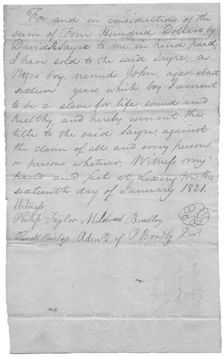 For and in consideration of the
sum of Four Hundred Dollars by
David Sayre to me in hand paid,
I have sold to the said Sayre, a
Negro boy, named John, aged about
sixteen years, which boy I warrent
to be a slave for life sound and
healthy, and hereby warrent the
title to the said Sayre, against
the claim of all and every person
or persons whatever. Witness my
hand and seal at Lexington this
sixteenth day of January 1821.
Witness
Philip Taylor Mildred Bradley
Admx of P Bradly Decd